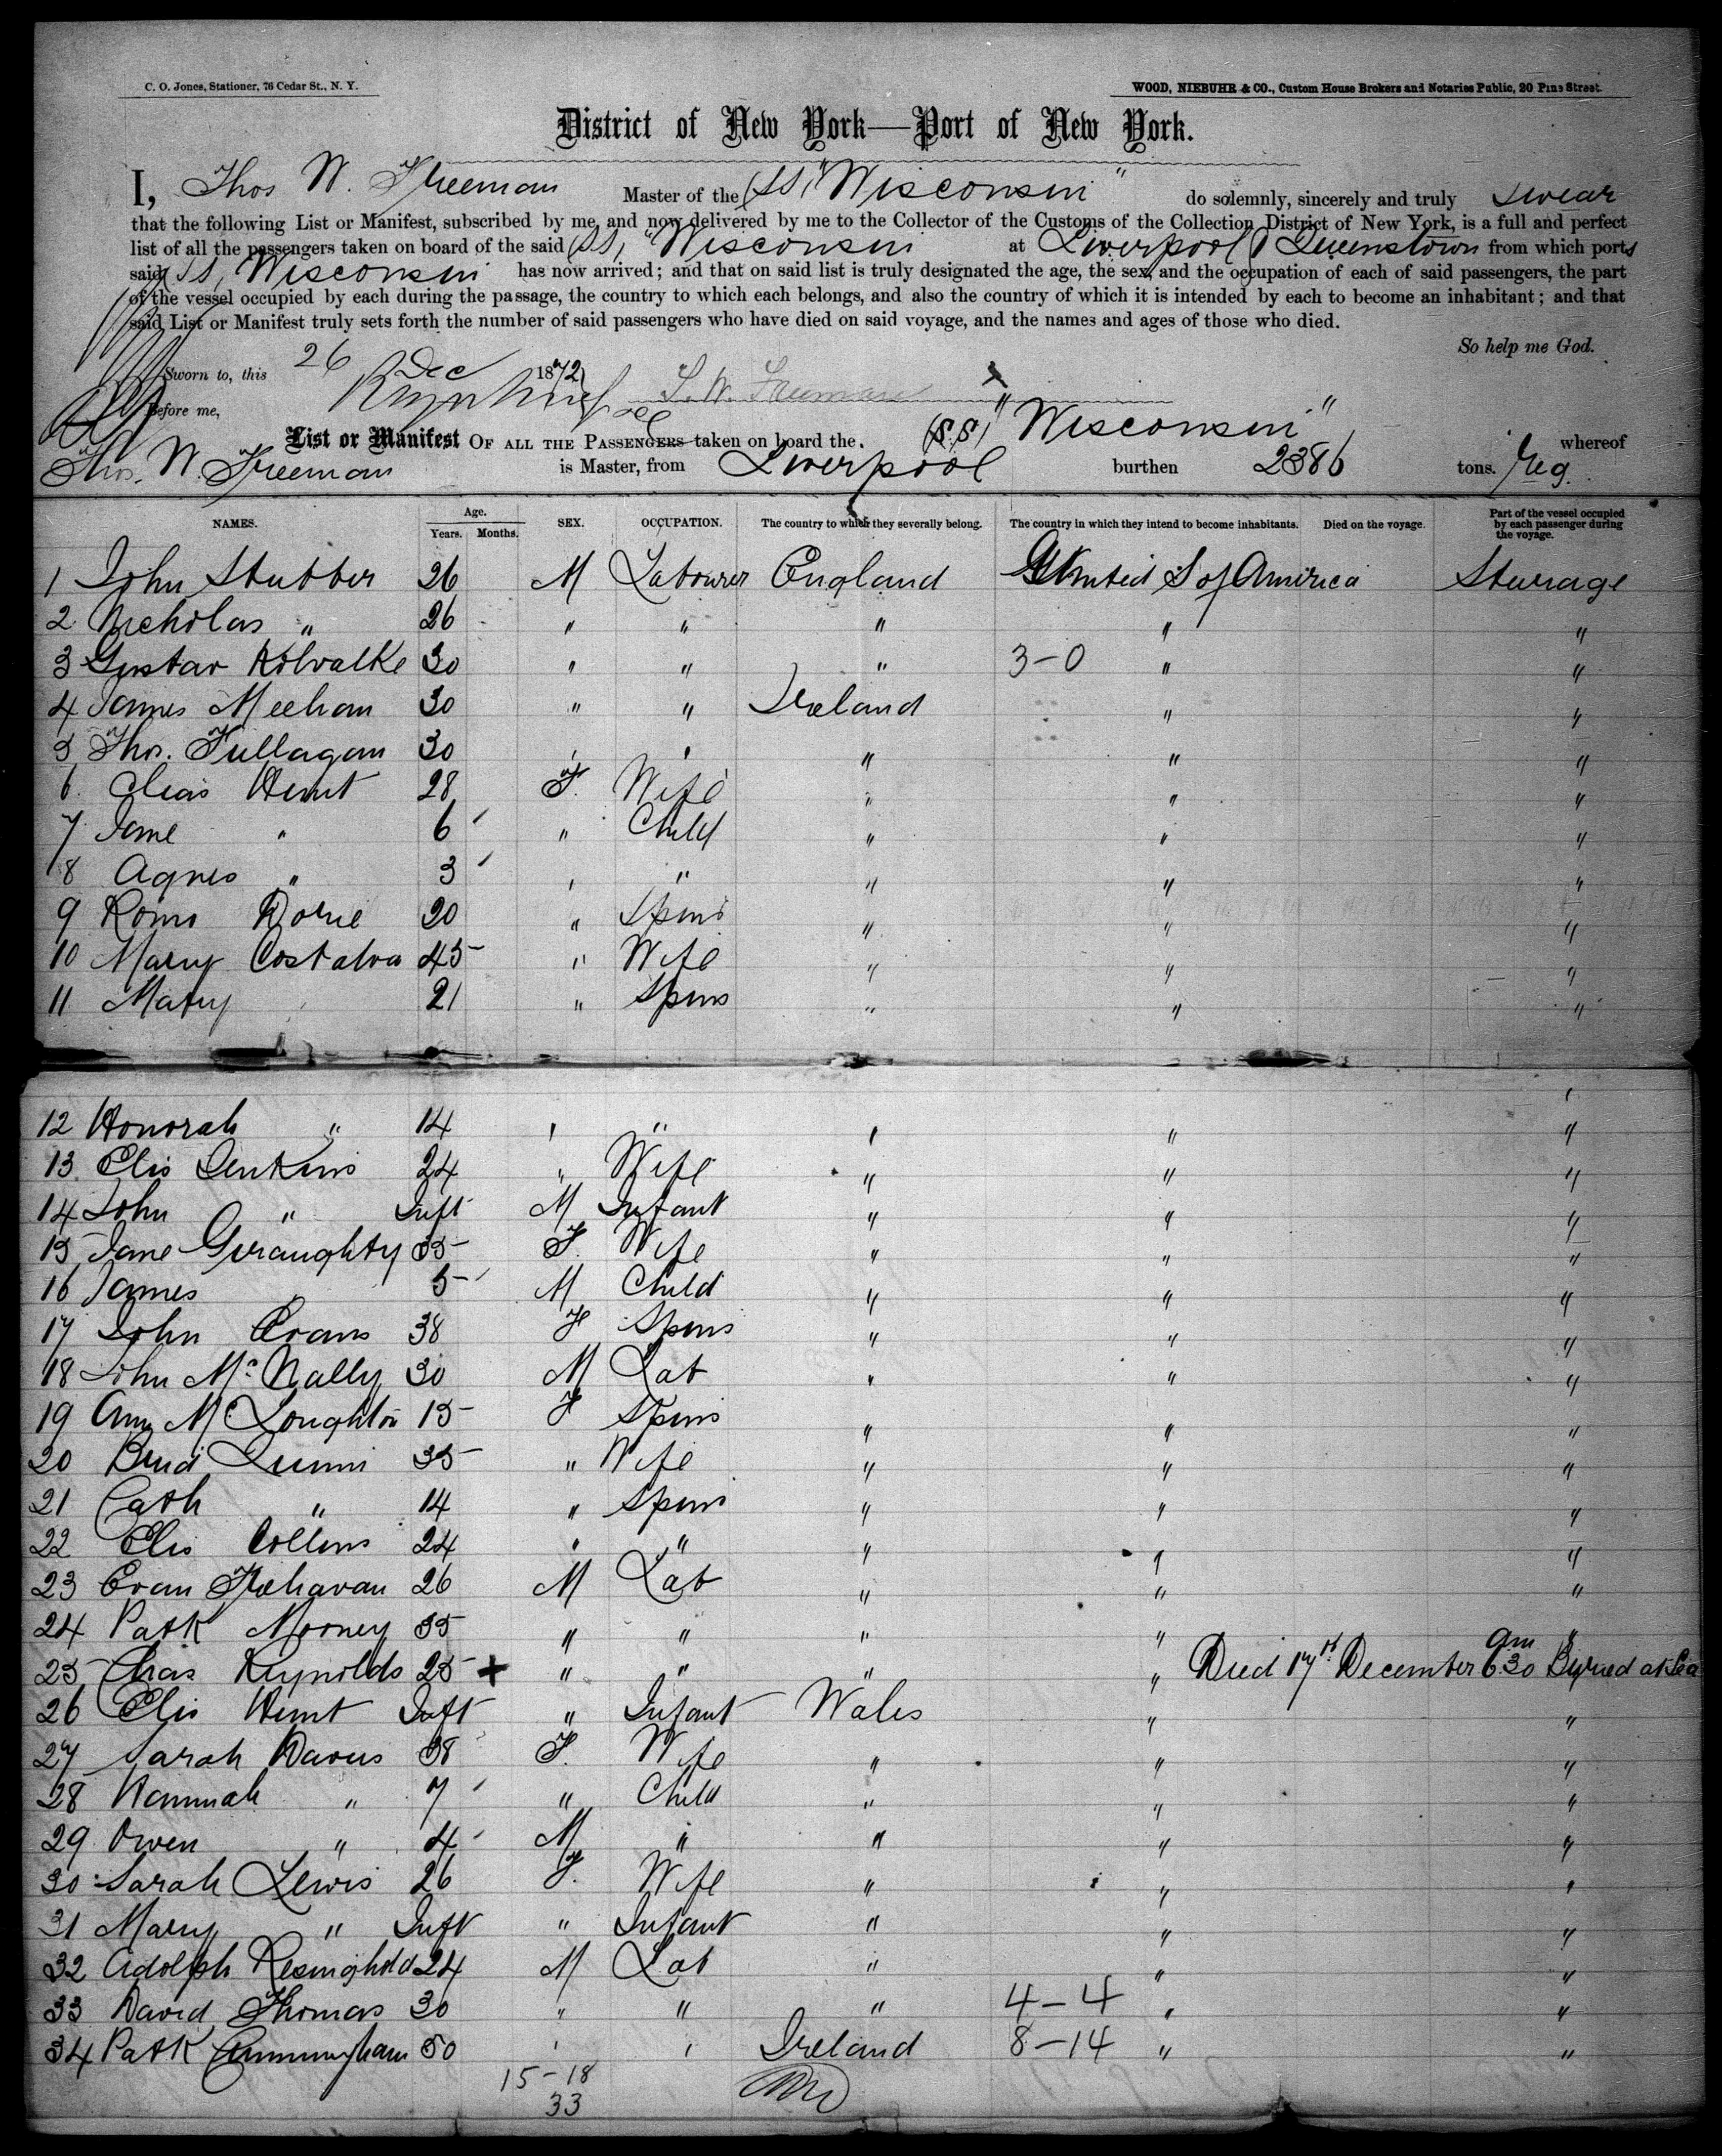 C. O. Jones, Stationer, 76 Cedar St., N. Y.
WOOD, NIEBUHR & CO., Custom House Brokers and Notaries Public, 20 Pine Street.
District of New York—Port of New York.
I, Thos W. Freeman Master of the (SS) "Wisconsin" do solemnly, sincerely and truly swear
that the following List or Manifest, subscribed by me, and now delivered by me to the Collector of the Customs of the Collection District of New York, is a full and perfect
list of all the passengers taken on board of the said (SS) "Wisconsin at Liverpool & Queenstown from which ports
said SS, Wisconsin has now arrived; and that on said list is truly designated the age, the sex, and the occupation of each of said passengers, the part
of the vessel occupied by each during the passage, the country to which each belongs, and also the country of which it is intended by each to become an inhabitant; and that
said List or Manifest truly sets forth the number of said passengers who have died on said voyage, and the names and ages of those who died.
So help me God.
Sworn to, this 26 Dec 1872
T. W. Freeman
Before me,
List or Manifest OF ALL THE PASSENGERS taken on board the (S.S) "Wisconsin" whereof
Thos. W. Freeman is Master, from Liverpool burthen 2386 tons. Reg.
NAMES. Age. Years. Months. SEX. OCCUPATION. The country to which they severally belong. The country in which they intend to become inhabitants. Died on the voyage. Part of the vessel occupied by each passenger during the voyage.
1 John Stubber 26 M Labourer England United S of America Steerage
2 Nicholas " 26 " " " " "
3 Gustav 30 " " " 3-0 " "
4 James Meehan 30 " " Ireland " "
5 Thos. Fullagan 30 " " " " "
6 Hunt 28 F. Wife " " "
7 Jane " 6 " Child " " "
8 Agnes " 3 " " " " "
9 20 " Spins " " "
10 Mary 45 " Wife " " "
11 Mary 21 " Spins " " "
12 Honorah " 14 " " " " "
13 Elis Jenkins 24 " Wife " " "
14 John " Inft M Infant " " "
15 Jane Geraughty 35 F. Wife " " "
16 James 5 M Child " " "
17 John Evans 38 F Spins " " "
18 John Mc Nally 30 M Lab " " "
19 Ann Mc Loughlin 15 F Spins " " "
20 Brid Quinn 35 " Wife " " "
21 Cath " 14 " Spins " " "
22 Elis Collins 24 " " " " "
23 Evan 26 M Lab " " "
24 Patk Mooney 35 " " " " "
25 Chas Reynolds 25 + " " " " Died 17th December 6.30 am Buried at Sea
26 Elis Hunt Inft " Infant Wales " "
27 Sarah Davis 38 F. Wife " " "
28 Hannah " 7 " Child " " "
29 Owen " 4 M " " " "
30 Sarah Lewis 26 F. Wife " " "
31 Mary " Inft " Infant " " "
32 Adolph 24 M Lab " " "
33 David Thomas 30 " " " 4-4 " "
34 Patk Cunningham 50 " " Ireland 8-14 " "
15-18
33